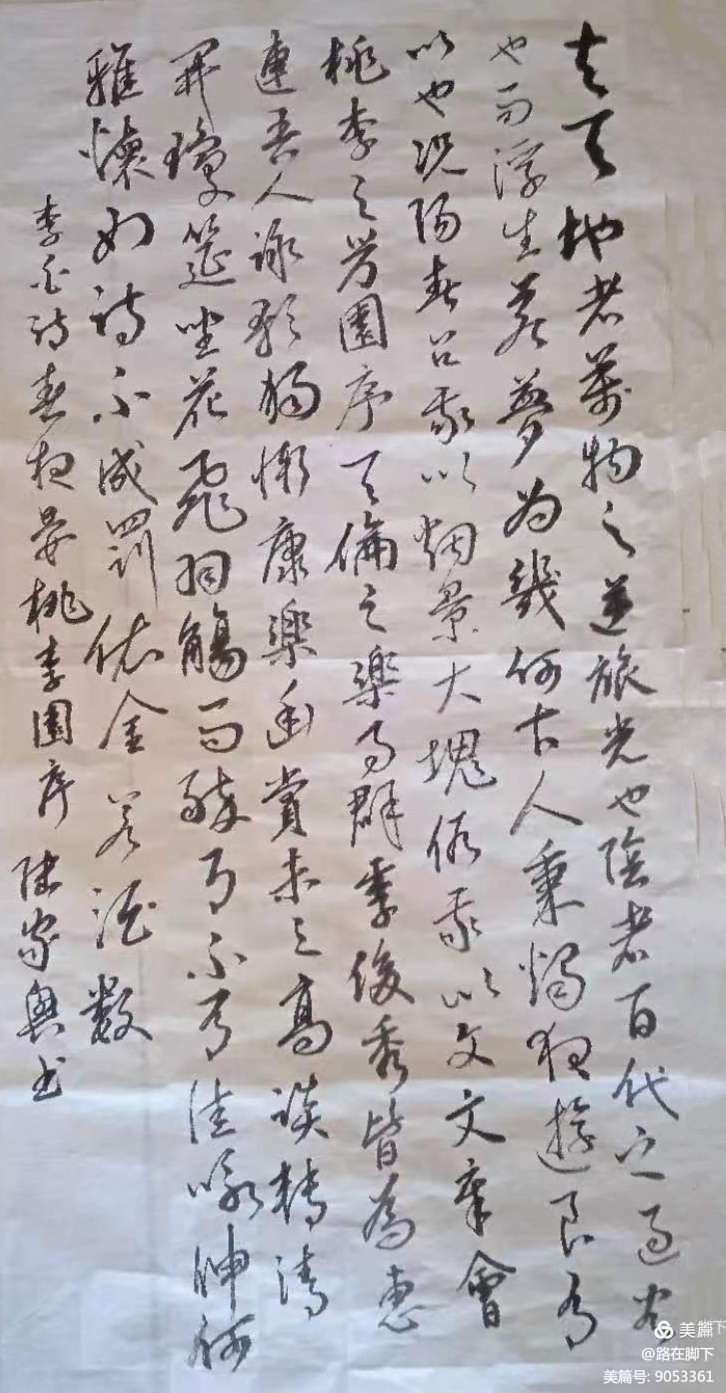 夫天地者萬物之逆旅光也陰者百代之過客
也而浮生若夢為幾何古人秉燭夜遊良有
以也況陽春召我以烟景大塊假我以文文章會
桃李之芳園序天倫之樂事群季俊秀皆為惠
連吾人詠歌獨慚康樂幽賞未已高談轉清
開瓊筵坐花飛羽觴而醉月不有佳咏伸何
雅懷如詩不成罰依金谷酒數
李白詩春夜宴桃李園序 陸家興书
美篇
@路在脚下
美篇号: 9053361